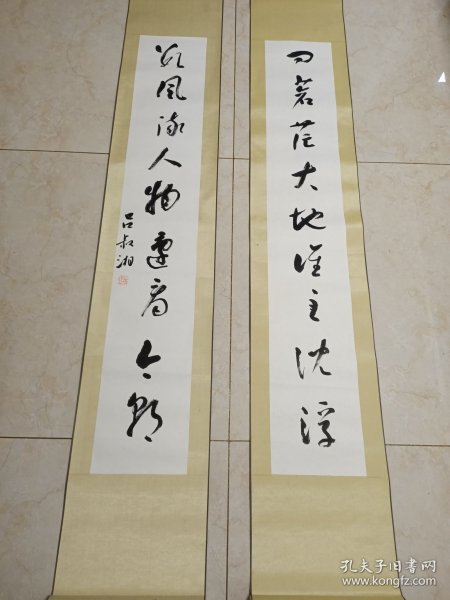 問蒼茫大地誰主沈浮
數風流人物還看今朝
吕叔湘
孔夫子旧书网
www.kongfz.com